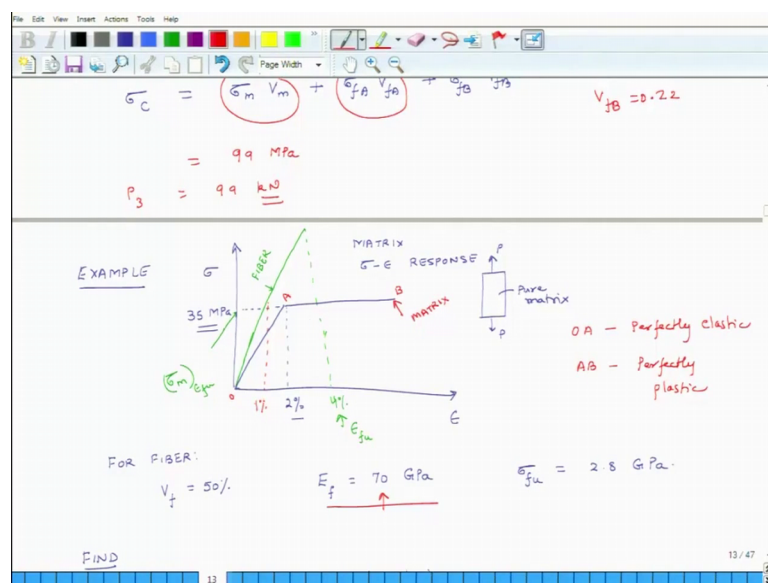 File Edit View Insert Actions Tools Help
B I
Page Width
σc = σm Vm + σfA VfA + σfB VfB
VfB = 0.22
= 99 MPa
P3 = 99 kN
EXAMPLE
σ
FIBER
MATRIX
σ-ε RESPONSE
P
Pure
matrix
P
35 MPa
A
B
MATRIX
OA - Perfectly elastic
AB - Perfectly
plastic
(σm)εfu
O
1%
2%
4%
ε
εfu
FOR FIBER:
Vf = 50%
Ef = 70 GPa
σfu = 2.8 GPa.
FIND
13 / 47
13